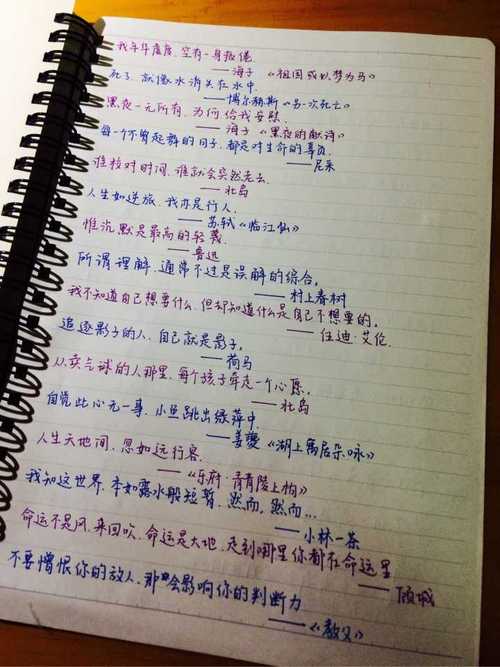 我年年虚度，空有一身疲倦
——海子《祖国或以梦为马》
死了，就像水消失在水中。
——博尔赫斯《另一次死亡》
黑夜一无所有，为何给我安慰
——海子《黑夜的献诗》
每一个不曾起舞的日子，都是对生命的辜负。
——尼采
谁校对时间，谁就会突然老去。
——北岛
人生如逆旅，我亦是行人。
——苏轼《临江仙》
惟沉默是最高的轻蔑。
——鲁迅
所谓理解，通常不过是误解的综合。
——村上春树
我不知道自己想要什么，但却知道什么是自己不想要的。
——伍迪·艾伦
追逐影子的人，自己就是影子。
——荷马
从卖气球的人那里，每个孩子牵走一个心愿。
——北岛
自觉此心无一事，小鱼跳出绿萍中。
——姜夔《湖上寓居杂咏》
人生天地间，忽如远行客。
——《乐府·青青陵上柏》
我知这世界，本如露水般短暂，然而，然而…
——小林一茶
命运不是风，来回吹，命运是大地，走到哪里你都在命运里
——倾城
不要憎恨你的敌人，那会影响你的判断力
——《教父》